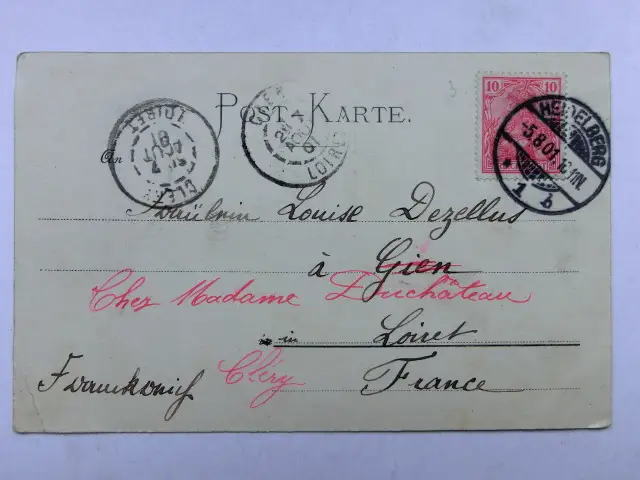 10 10
POST-KARTE.
HEIDELBERG
-5.8.01.
* 1 b
GIEN
LOIRET
CLERY
LOIRET
An
Fräulein Louise Dezellus
à Gien
Chez Madame Duchâteau
in Loiret
Cléry
Frankreich France